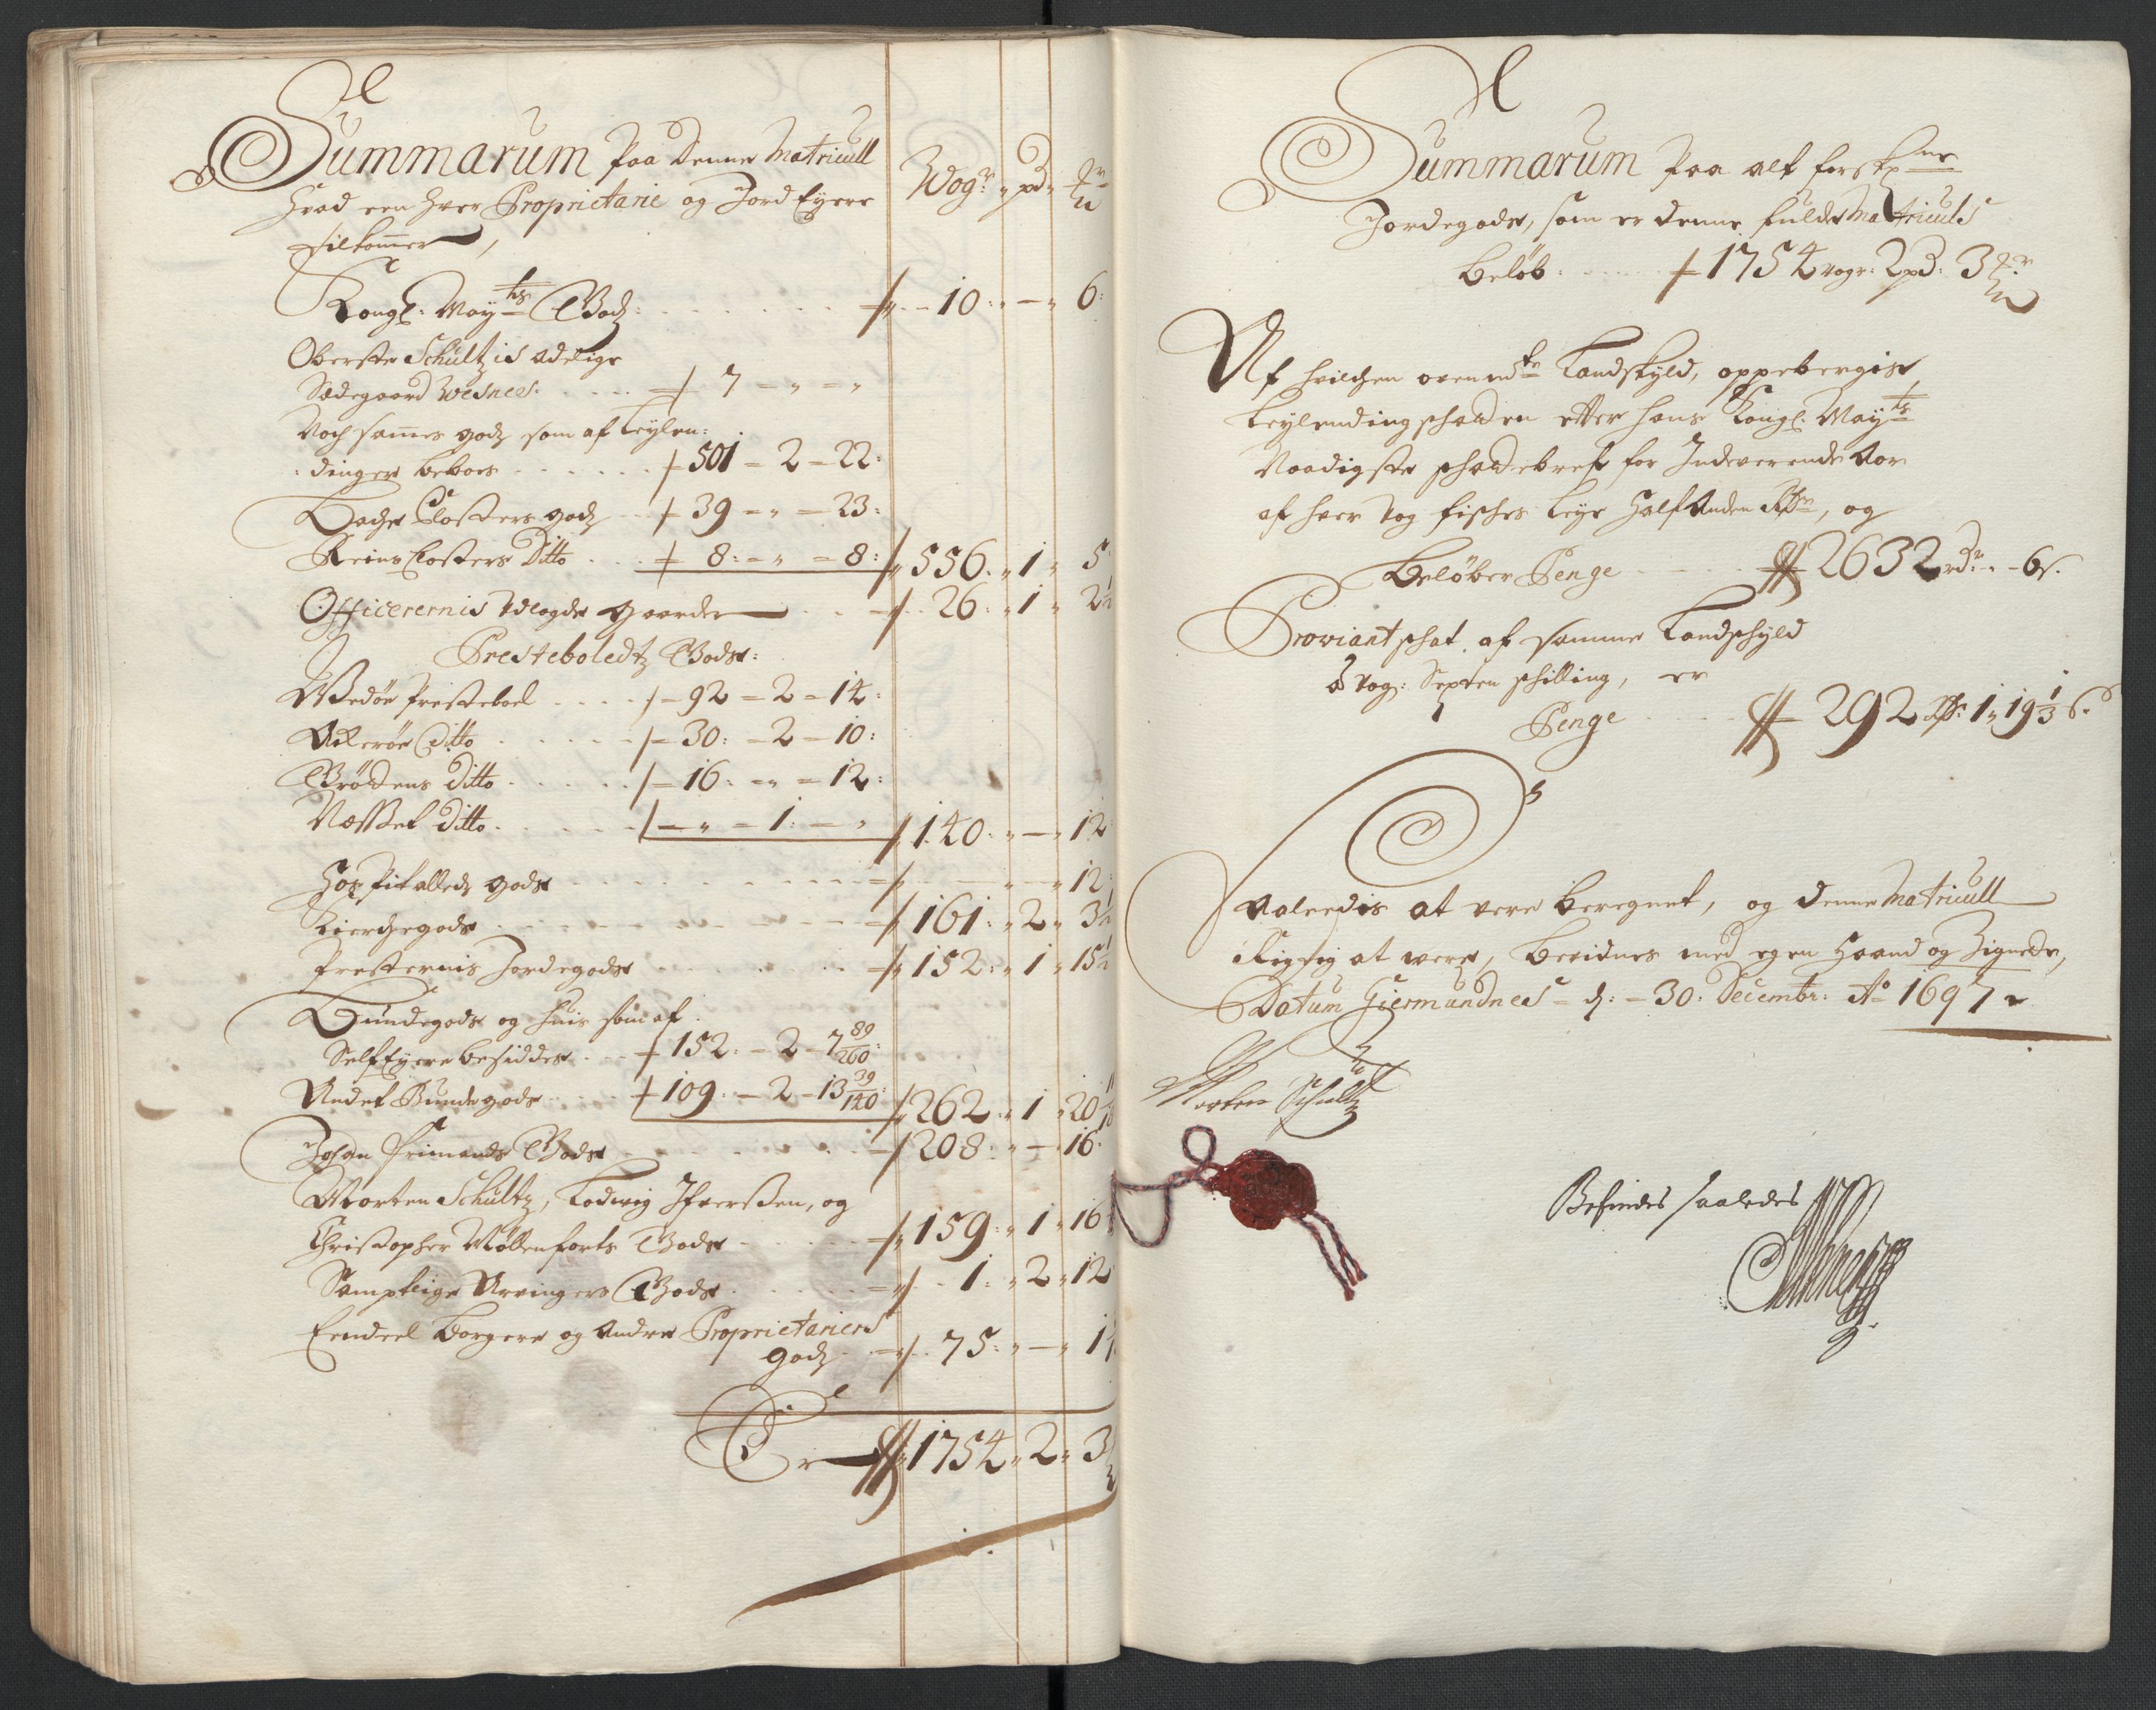 Summarum Paa denne Matricull
Hvad een hver Proprietarie og Jord Eyere
tilkommer,
Wogr pd
Kongl: Mayts Godz: 10: — 6:
Oberste Schultzis adelige
Sædegaard Wesnes. 7 — " — "
Noch sammes godz som af leylen:
dinger beboes 501 — 2 — 22:
Bache Closters godz 39 — " — 23:
Reins Closters Ditto 8: — " — 8: 556. 1 5
Officerernis Udlagde gaarder 26: 1 2½
Presteboledtz Godz:
Wedøe presteboel 92 — 2 — 14:
Akerøe Ditto 30: — 2 — 10:
Grødens Ditto 16: — " — 12:
Næsset Ditto. — " — 1: — " 140: — 12
Hospitalleds gods — — 12:
Kierchegods 161: 2 3½
Presternis Jordegods 152: 1 15½
Bundegods og huis som af
Selfeyere besiddes 152: — 2 — 7 89/260:
Andet Bundegods 109. — 2 — 13 39/140: 262: 1 20
Johan Frimands Gods 208: — 16.
Morten Schultz, Lodwig Ifverssen, og
Christopher Møllenforts Gods 159: 1 16
Samptlige Arvingers Gods 1: 2 12
Eendeel borgere og andre Proprietariers
godz 75: —
Er 1754 2 3
Summarum Paa alt forskne
Jordegods, som er denne fulde Matriculs
Beløb: 1754 wogr: 2 pd: 3
Af hvilchen ovenmte Landskyld, oppebergis
Leylendingschaden efter hans Kongl: Mayts
Naadigste schadebref for Indeverende Aar
af hver Wog fisches leye halfanden , og
Beløber Penge 2632 rdr - 6 s.
Proviant schat af samme Landschyld
à Wog: Sexten schilling, er
Penge 292 1 19⅓ s.
Saaledis at vere beregnet, og denne Matricull
Rigtig at were, bevidnes med egen Haand og Zignede,
Datum Giermundnes d: 30: Decembr: Ao 1697
Morten Schultz
Befindes saaledes